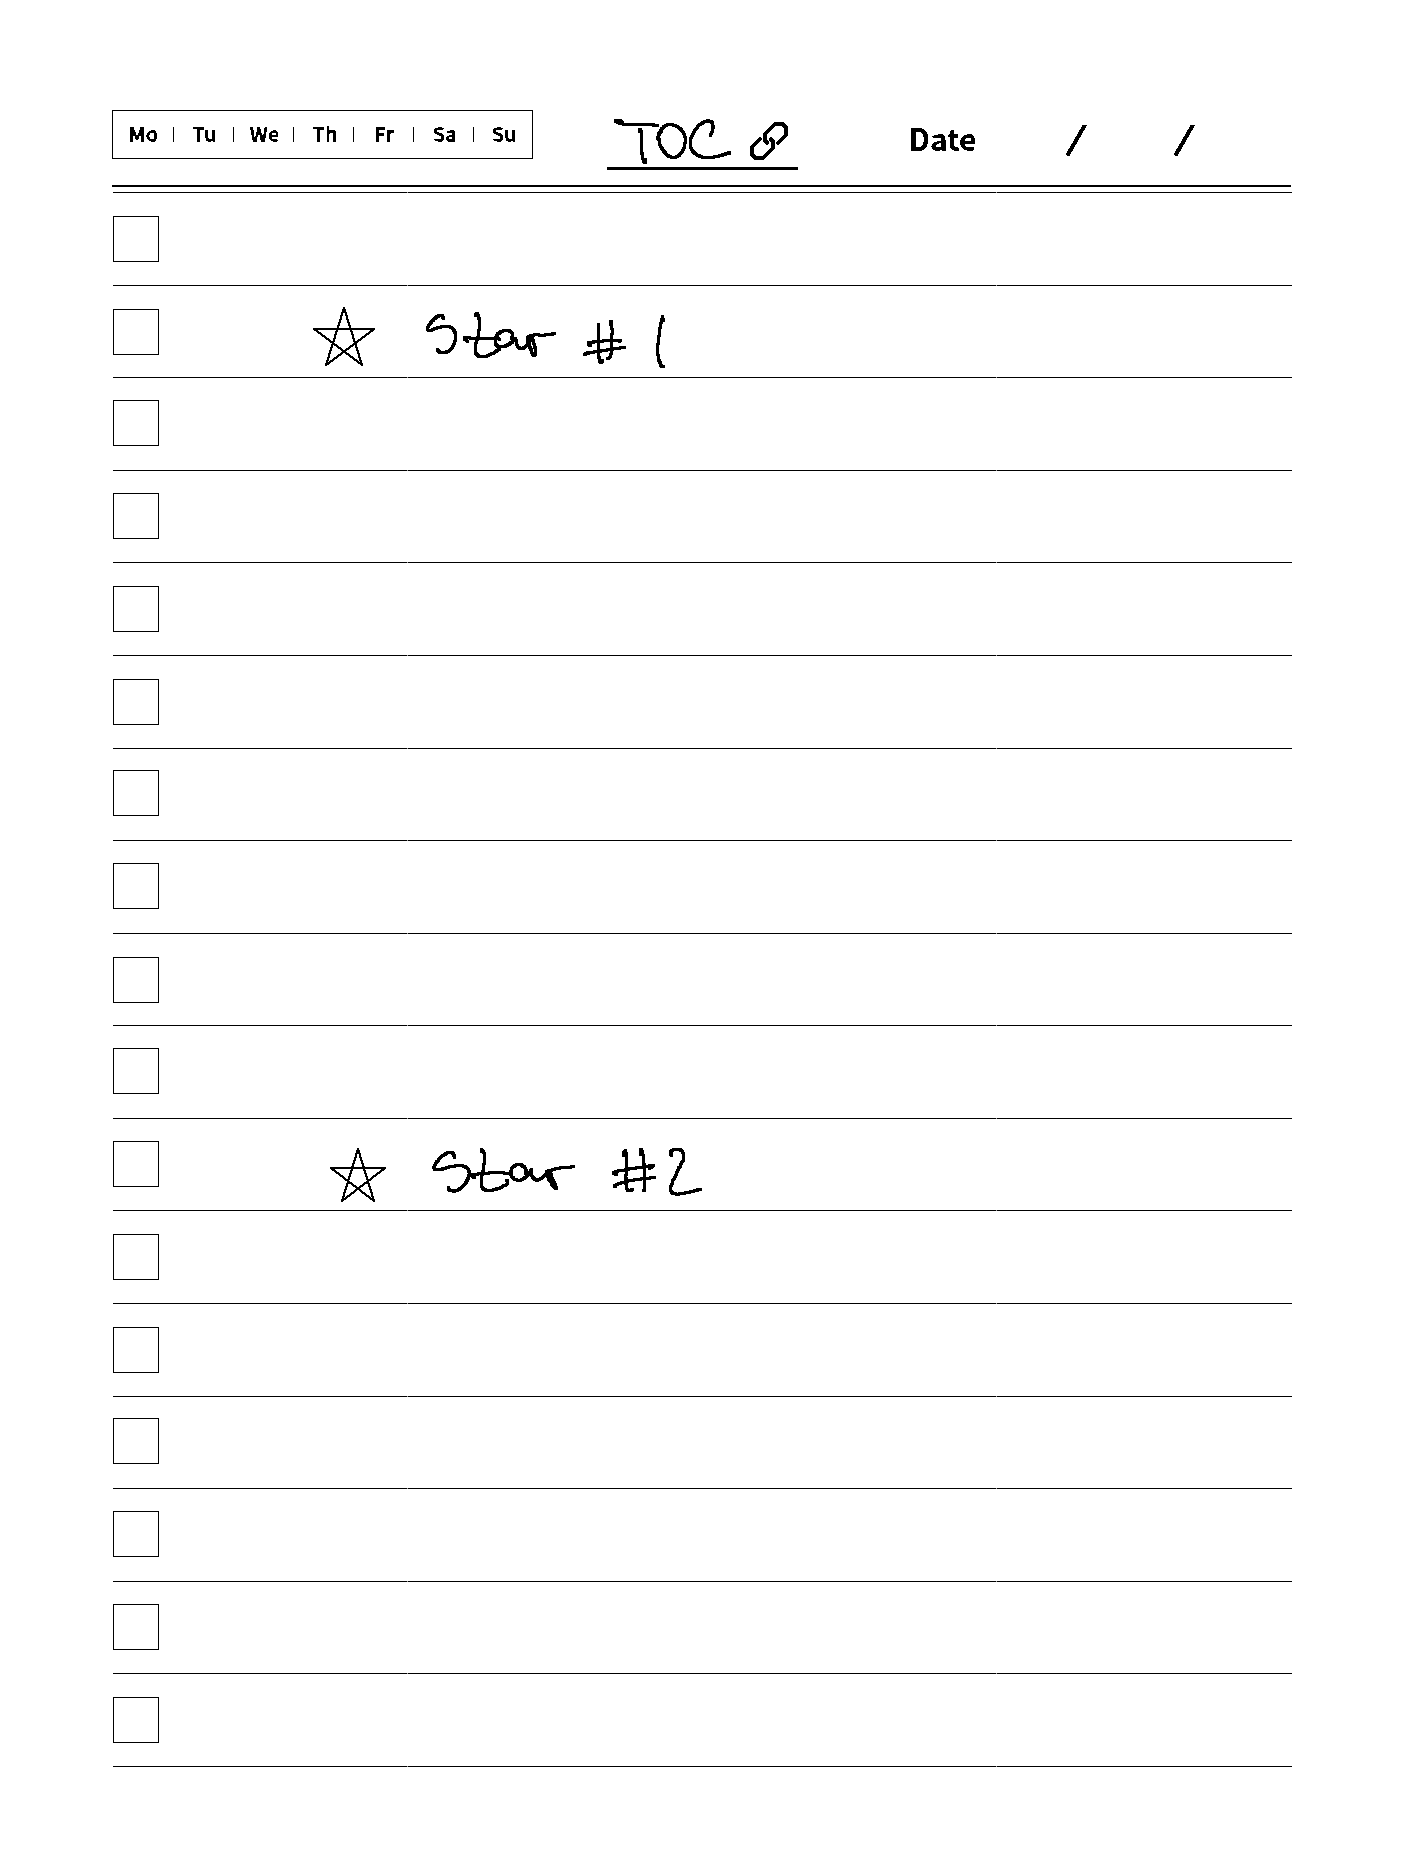 Mo | Tu | We | Th | Fr | Sa | Su TOC Date / /
☆ Star # 1
☆ Star #2